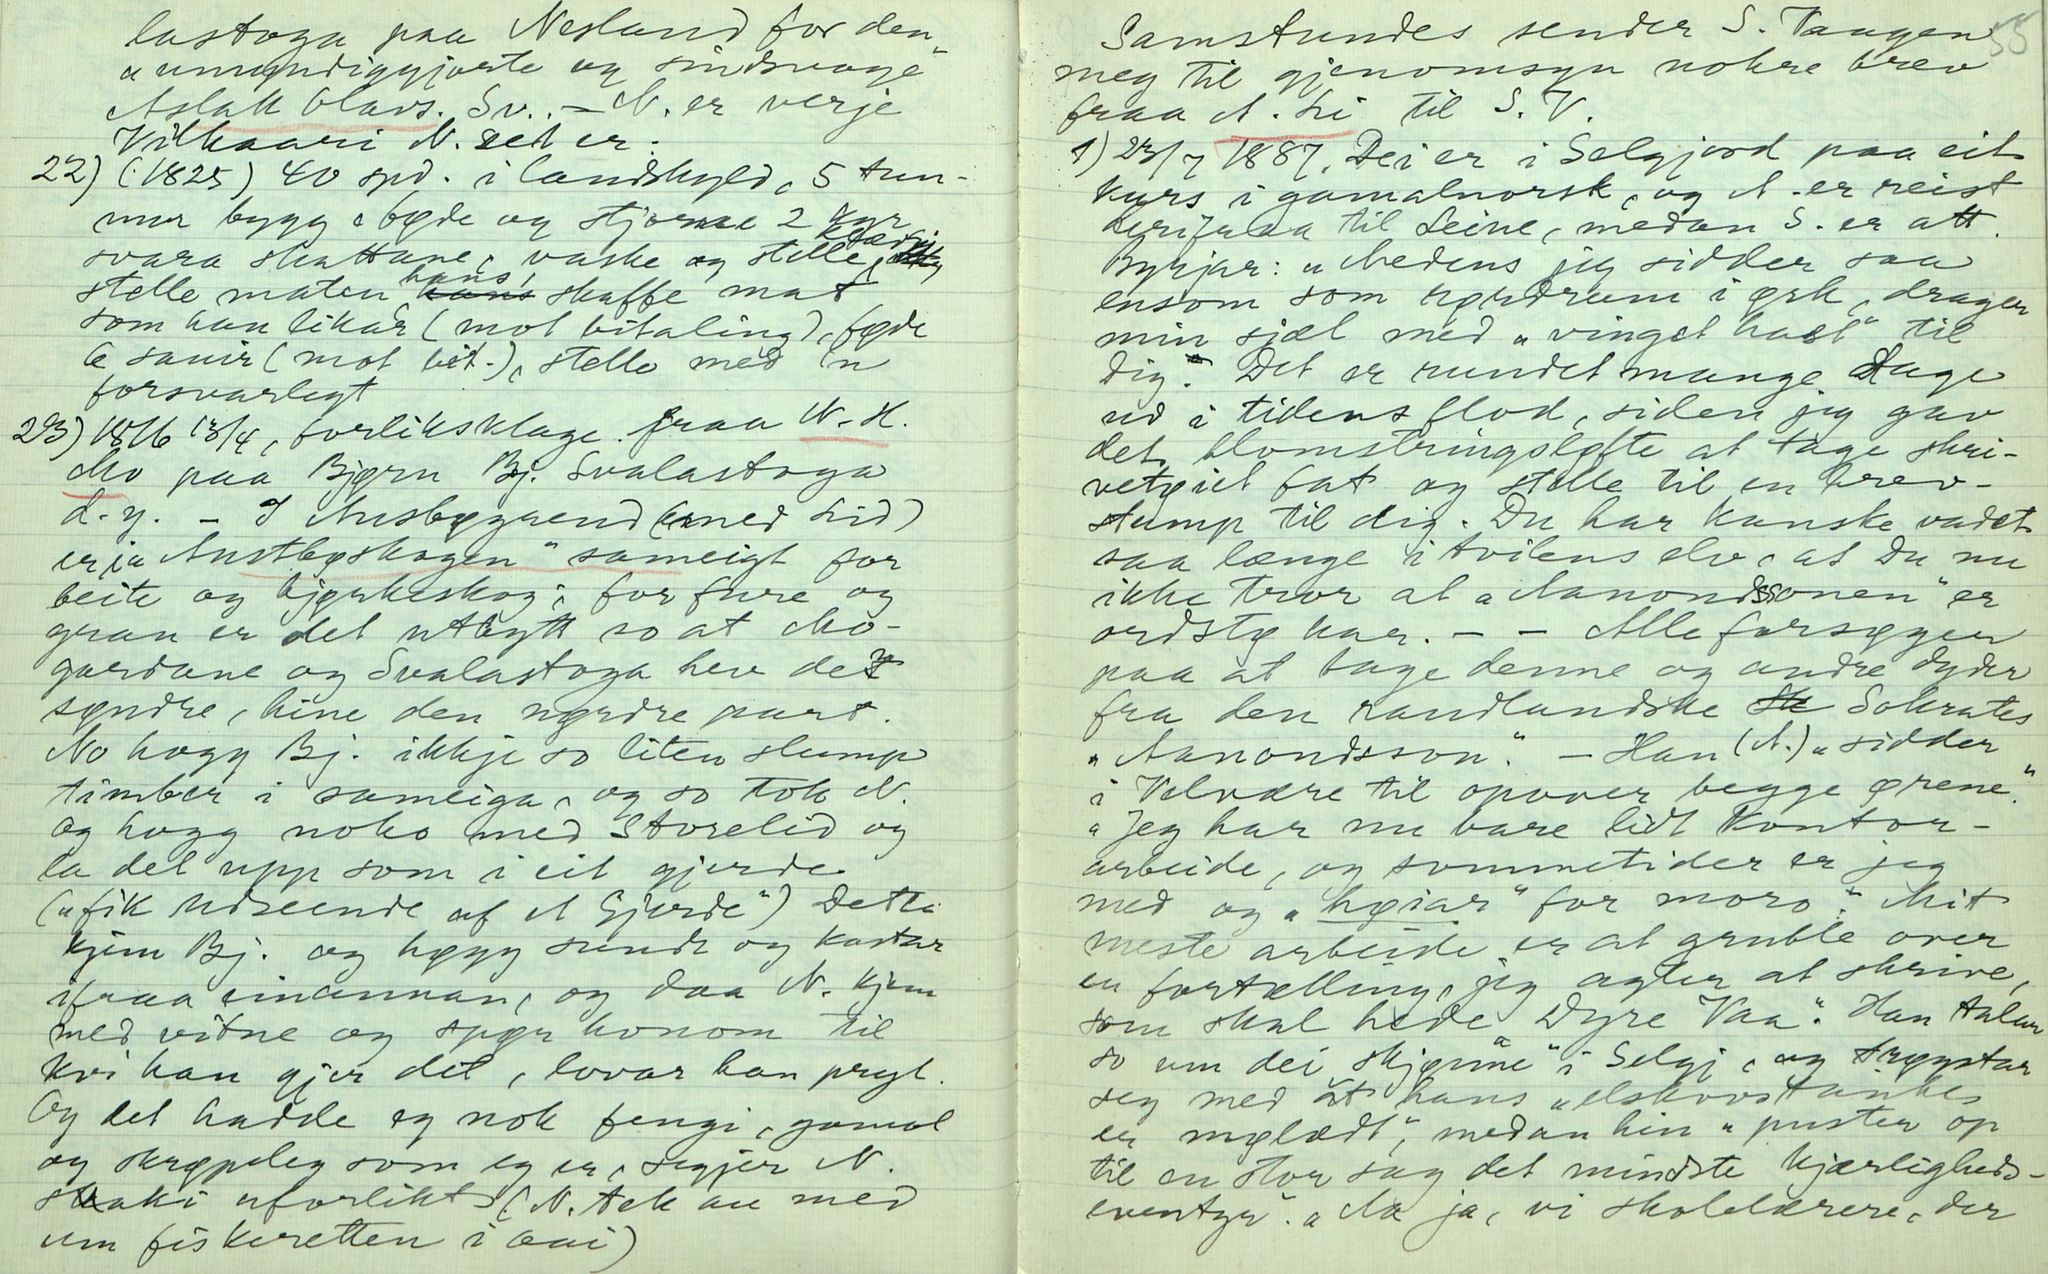 lastoga paa Nesland for den
"umyndiggjorte og sindsvage"
Aslak Olavs. Sv. – N. er verje
Vilkaari N. set er:
22) (1825) 40 spd. i landskyld, 5 tun-
nur bygg, føde og stjorne 2 kyr
svara skattane, vaske og stelle, klædi
stelle maten hans, skaffe mat
som han likar (mot bitaling), føde
6 sauir (mot bit.), stelle med 'n
forsvarlegt
23) 1816 13/4, forliksklage fraa N. H.
Mo paa Bjørn Bj. Svalastoga
d.y. – I Ausbygrend (med Lid)
er "Austbøskogen" sameigt for
beite og bjørkeskog, for fure og
gran er det utbytt so at Mo-
gardane og Svalastoga hev den
søndre, hine den nørdre part.
No hogg Bj. ikkje so liten slump
timber i sameiga, og so tok N.
og hogg noko med Storelid og
la det upp som i eit gjerde
("fik Udseende af et Gjerde") Dette
kjem Bj. og høgg sunde og kastar
ifraa einannan, og daa N. kjem
med vitne og spør honom til
kvi han gjer det, lovar han pryl.
Og det hadde eg nok fengi, gamal
og skrøpeleg som eg er, segjer N.
saki uforlikt. (N. tek au med
um fiskeretten i aai)
55
Samstundes sender S. Vaagen
meg til gjenomsyn nokre brev
fraa A. Li til S. V.
1) 23/7 1887. Dei er i Selgjord paa eit
kurs i gamalnorsk, og A. er reist
herifraa til Leine, medan S. er att.
Byrjar: "Medens jeg sidder saa
ensom som nordrum i ørk, drager
min sjæl med "vinget hast" til
dig". Det er rundet mange Dage
ud i tidens flod, siden jeg gav
det blomstringsløfte at tage skri-
vetøiet fat og stelle til en brev-
stump til dig. Du har kanske vadet
saa længe i tvilens elv, at Du nu
ikke tror at "Aanondssonen" er
ordstø kar. – – Alle forsøger
paa at tage denne og andre dyder
fra den randlandske Sokrates
"Aanondsson". – Han (A.) "sidder
i Velvære til opover begge ørene".
"Jeg har nu bare lidt Kontor-
arbeide, og sommetider er jeg
med og "høiar" for moro". Mit
meste arbeide er at gruble over
en fortælling, jeg agter at skrive,
som skal hede "Dyre Vaa". Han talar
so um dei "skjønne" i Selgj. og trøystar
seg med at hans "elskovstanke
er mælædt", medan hin "puster op
til en stor sag det mindste kjærligheds-
eventyr". "Aa ja, vi skolelærere, der